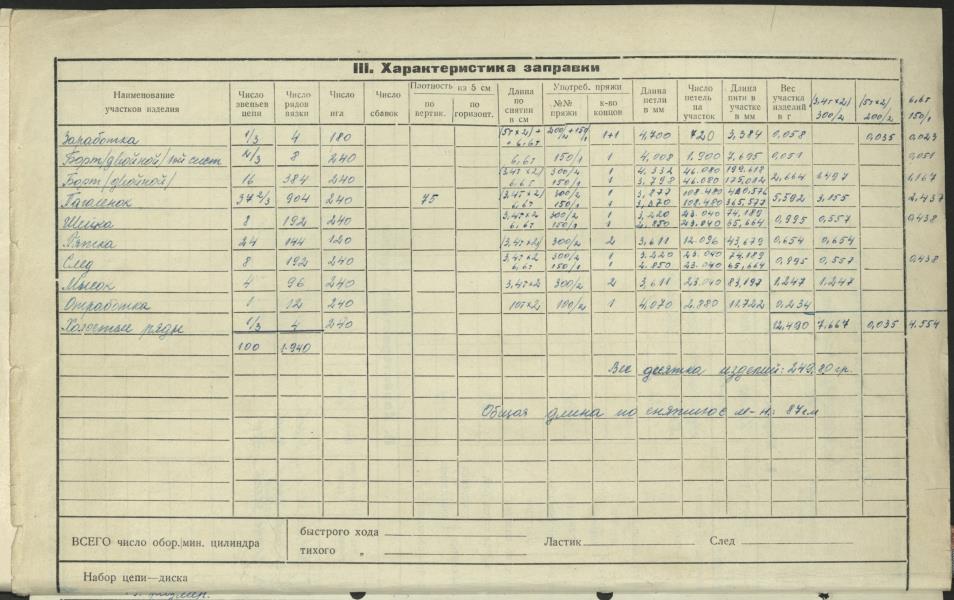 III. Характеристика заправки
Наименование участков изделия | Число звеньев цепи | Число рядов вязки | Число игл | Число сбавок | Плотность из 5 см по вертик. | по горизонт. | Длина по снятии в см | Употреб. пряжи №№ пряжи | к-во концов | Длина петли в мм | Число петель на участок | Длина нити в участке в мм | Вес участка изделия в г | /3,4т×2/ 300/2 | /5т×2/ 200/2 | 6,6т 150/1
Заработка 1/3 4 180 /5т×2/+ +6,6т 200/2+150/1 1+1 4,700 720 3,384 0,058 0,035 0,023
Борт/двойной/ 1ый сист. 2/3 8 240 6,6т 150/1 1 4,008 1.900 7,695 0,051 0,051
/3,4т×2/ 300/2 1 4,332 46.080 199,618
Борт/двойной/ 16 384 240 6,6т 150/1 1 3,798 46.080 175,012 2,664 1,497 1,167
/3,4т×2/ 300/2 1 3,877 108.480 420,576
Паголенок 37 2/3 904 240 75 6,6т 150/1 1 3,370 108.480 365,577 5,592 3,155 2,437
3,4т×2 300/2 1 3,220 23.040 74,189
Шейка 8 192 240 6,6т 150/1 1 2,850 23.040 65,664 0,995 0,557 0,438
Пятка 24 144 120 /3,4т×2/ 300/2 2 3,611 12.096 43,679 0,654 0,654
3,4т×2 300/2 1 3,220 23.040 74.189
След 8 192 240 6,6т 150/1 1 2.850 23.040 65,664 0,995 0,557 0,438
Мысок 4 96 240 3,4т×2 300/2 2 3,611 23.040 83,197 1.247 1.247
Отработка 1 12 240 10т×2 100/2 1 4,070 2.880 11,722 0,234
Холостые ряды 1/3 4 240 12,490 7,667 0,035 4.554
100 1.940
Вес десятка изделий: 249,80 гр.
Общая длина по снятию с м-н: 87 см
ВСЕГО число обор. мин. цилиндра
быстрого хода
тихого „
Ластик
След
Набор цепи—диска